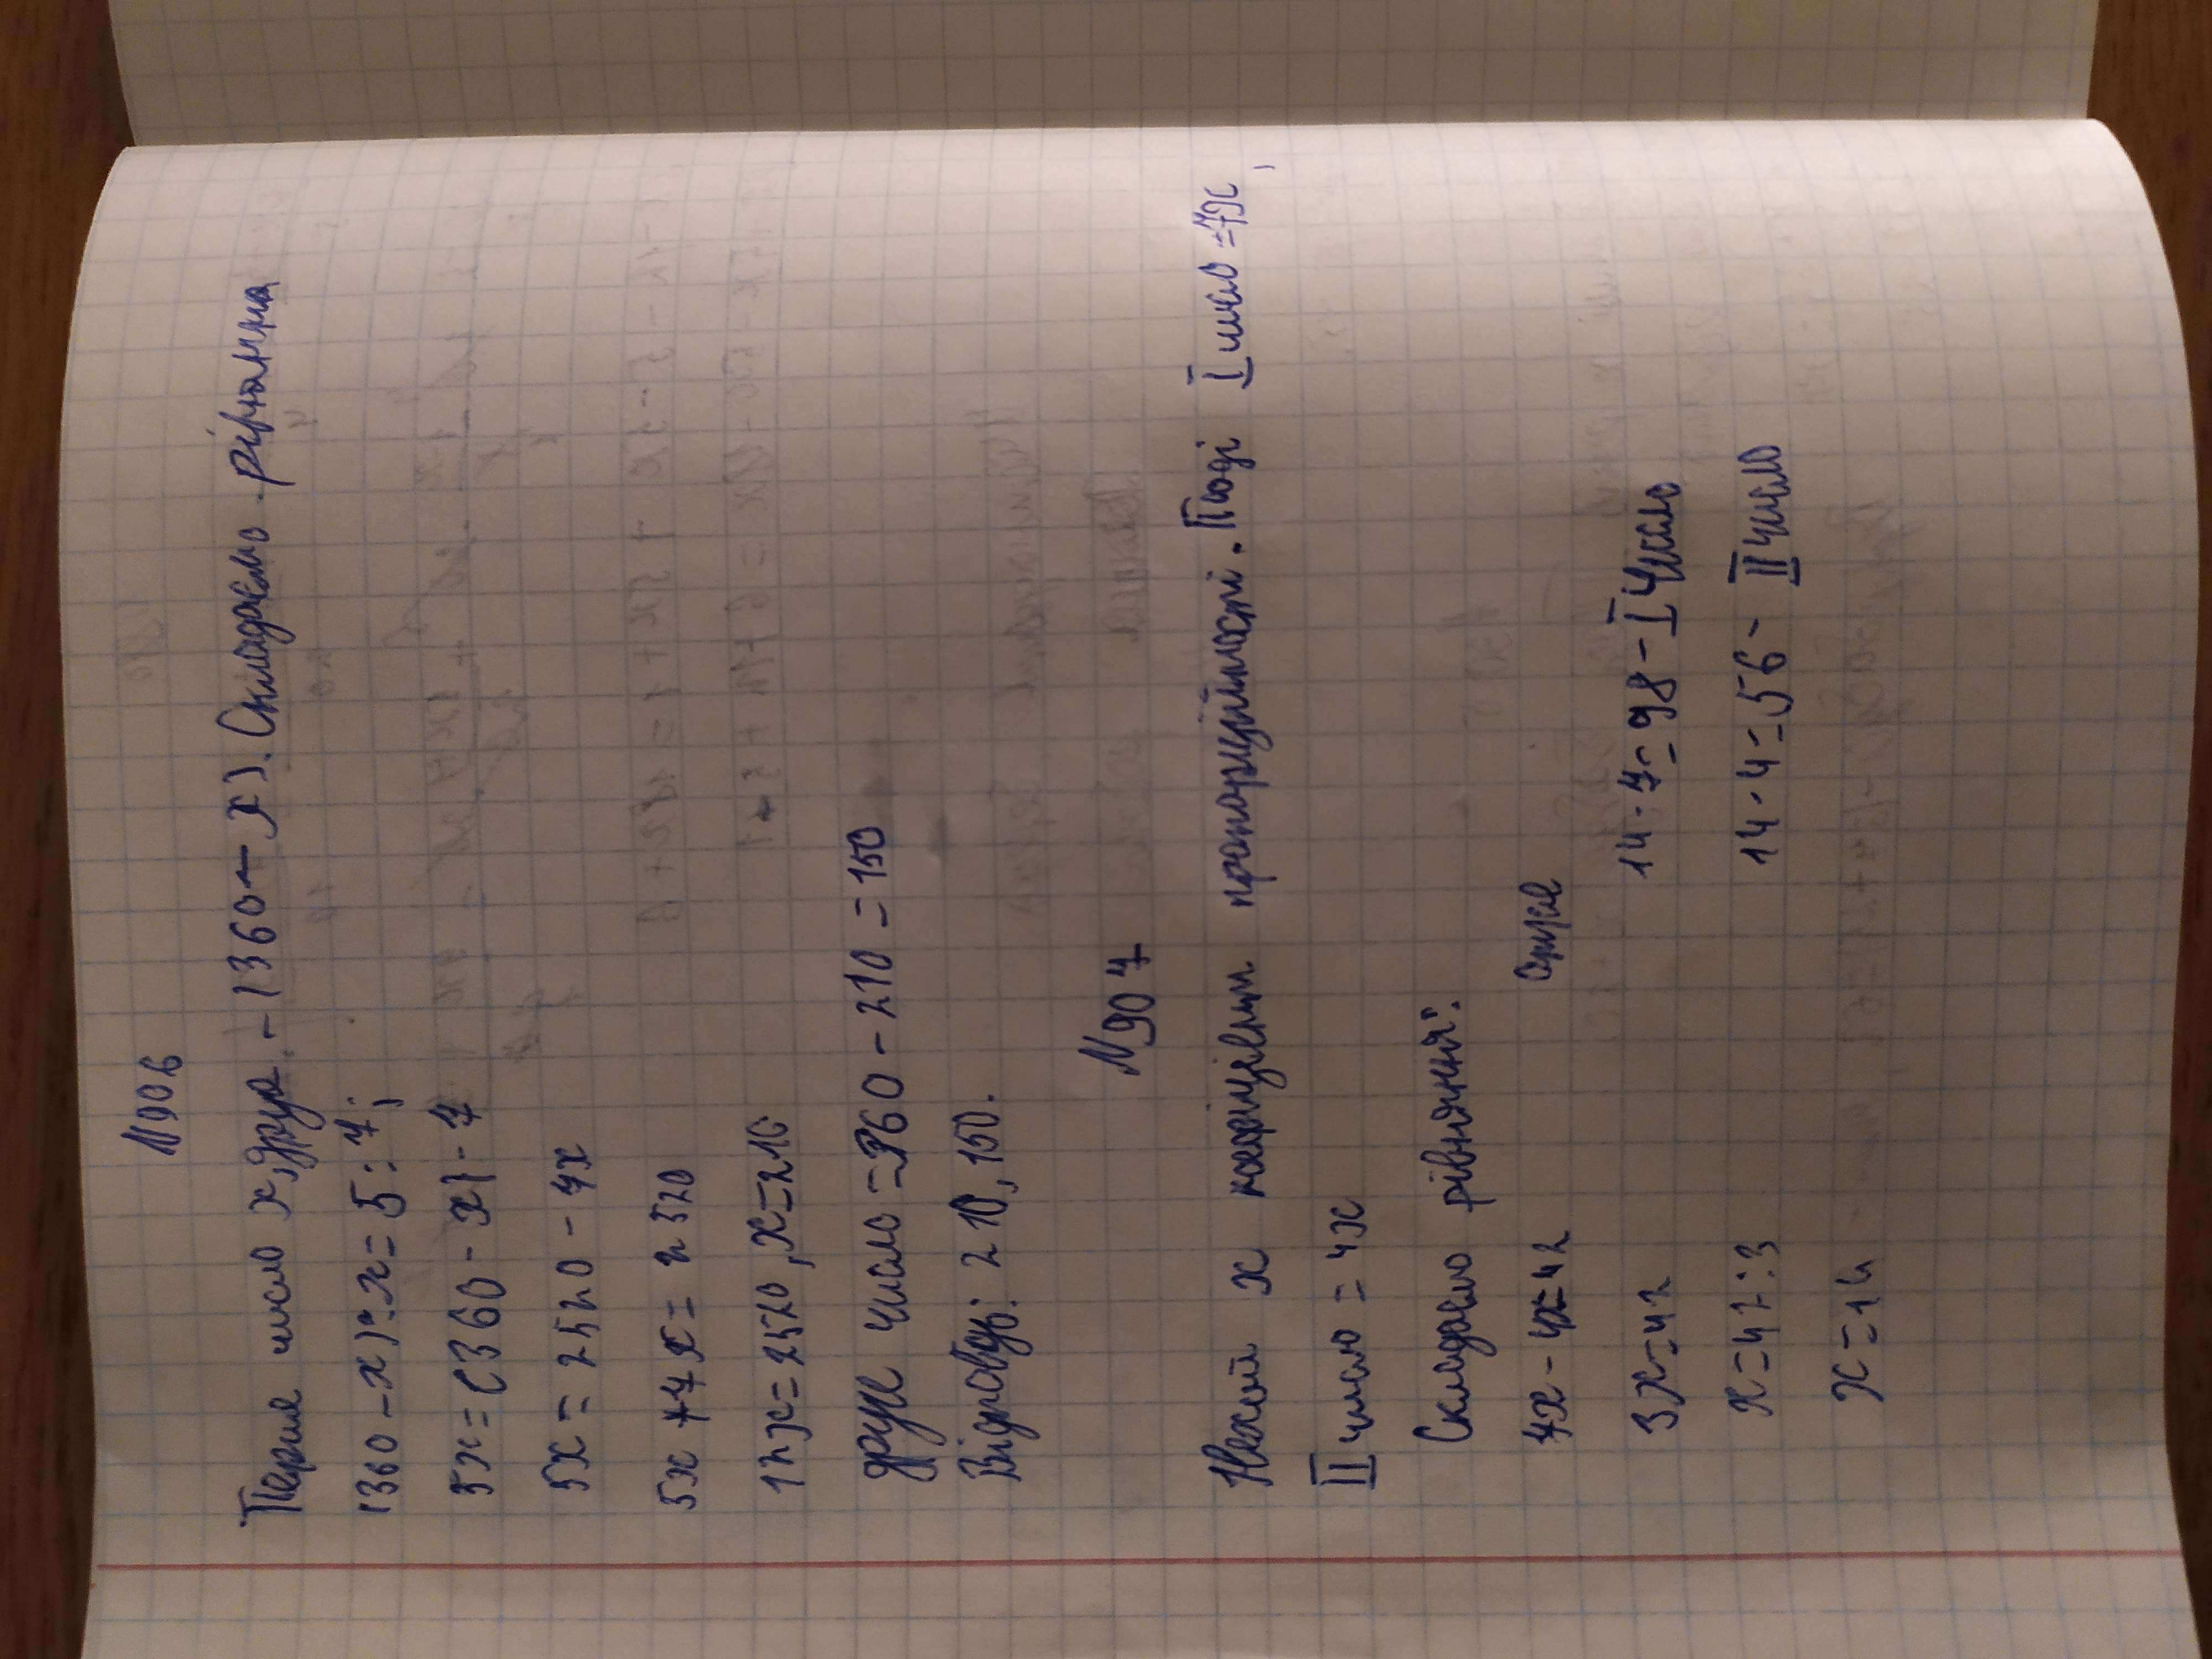 N906
Перше число x, друг. - (360 - x). Складемо рівняння
(360 - x) : x = 5 : 7;
5x = (360 - x) · 7
5x = 2520 - 7x
5x + 7x = 2520
12x = 2520, x = 210
друге число = 360 - 210 = 150
Відповідь: 210, 150.
N907
Нехай x коефіцієнт пропорційності. Тоді I число = 7x,
II число = 4x
Складемо рівняння:
7x - 4x = 42 отже
3x = 42 14 · 7 = 98 - I число
x = 42 : 3 14 · 4 = 56 - II число
x = 14